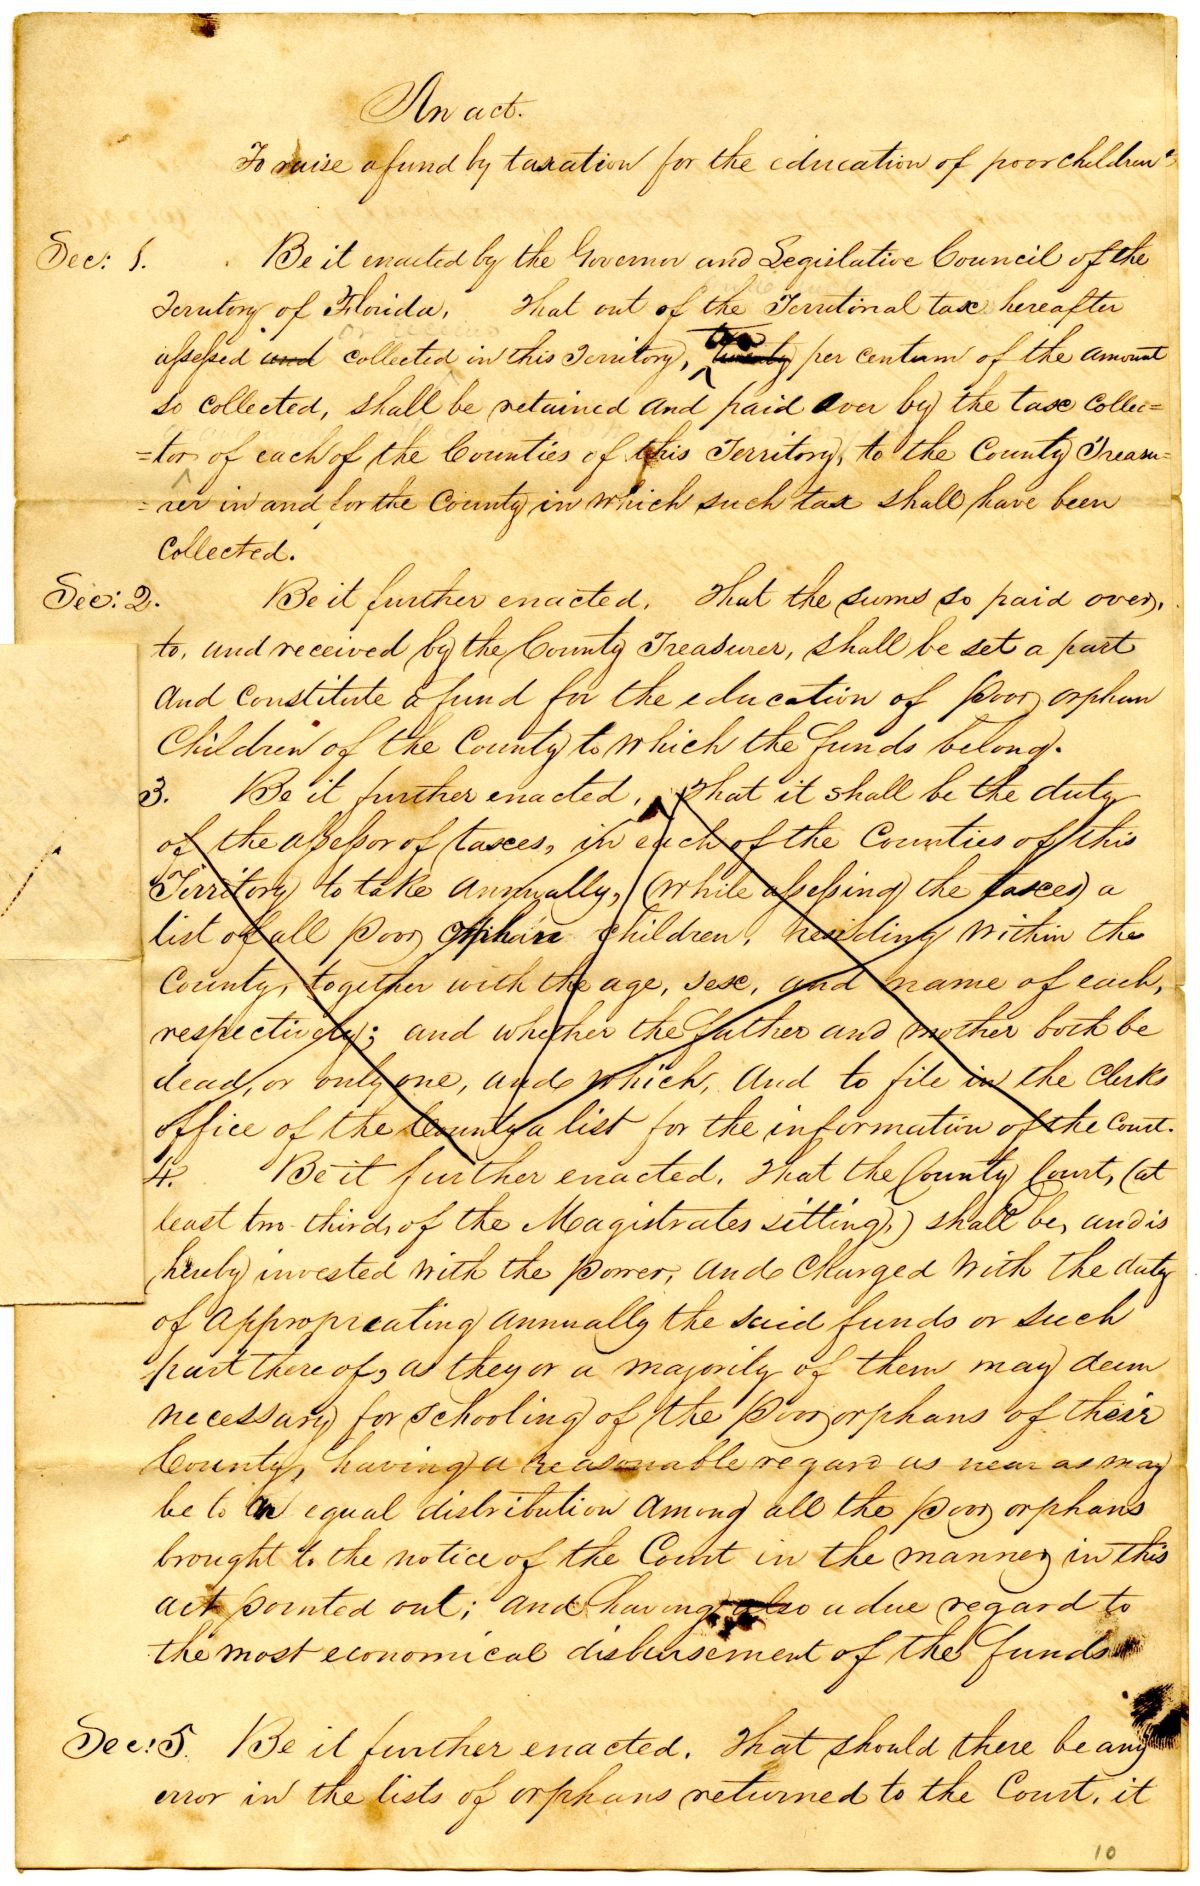 An act.
To raise a fund by taxation for the education of poor children
Sec: 1. Be it enacted by the Governor and Legislative Council of the
Territory of Florida, That out of the Territorial tax hereafter
assessed and collected in this Territory, ten twenty per centum of the amount
so collected, shall be retained and paid over by the tax collec=
=tor of each of the Counties of this Territory, to the County Treasu=
=rer in and for the County in which such tax shall have been
collected.
Sec: 2. Be it further enacted, That the sums so paid over,
to, and received by the County Treasurer, shall be set a part
and constitute a fund for the education of poor orphan
Children of the County to which the funds belong.
3. Be it further enacted, That it shall be the duty
of the assessor of taxes, in each of the Counties of this
Territory to take annually, (while assessing the taxes) a
list of all poor orphan children, residing within the
County, together with the age, sex, and name of each,
respectively; and whether the father and mother both be
dead, or only one, and which, and to file in the Clerks
office of the County a list for the information of the Court.
4. Be it further enacted, That the County Court, (at
least two thirds of the Magistrates sitting,) shall be, and is
hereby invested with the power, and charged with the duty
of appropreating annually the said funds or such
part there of, as they or a majority of them may deem
necessary for schooling of the poor orphans of their
County, having a reasonable regard as near as may
be to an equal distribution among all the poor orphans
brought to the notice of the Court in the manner in this
act pointed out; and having also a due regard to
the most economical disbursement of the funds
Sec: 5. Be it further enacted, That should there be any
error in the lists of orphans returned to the Court, it
10